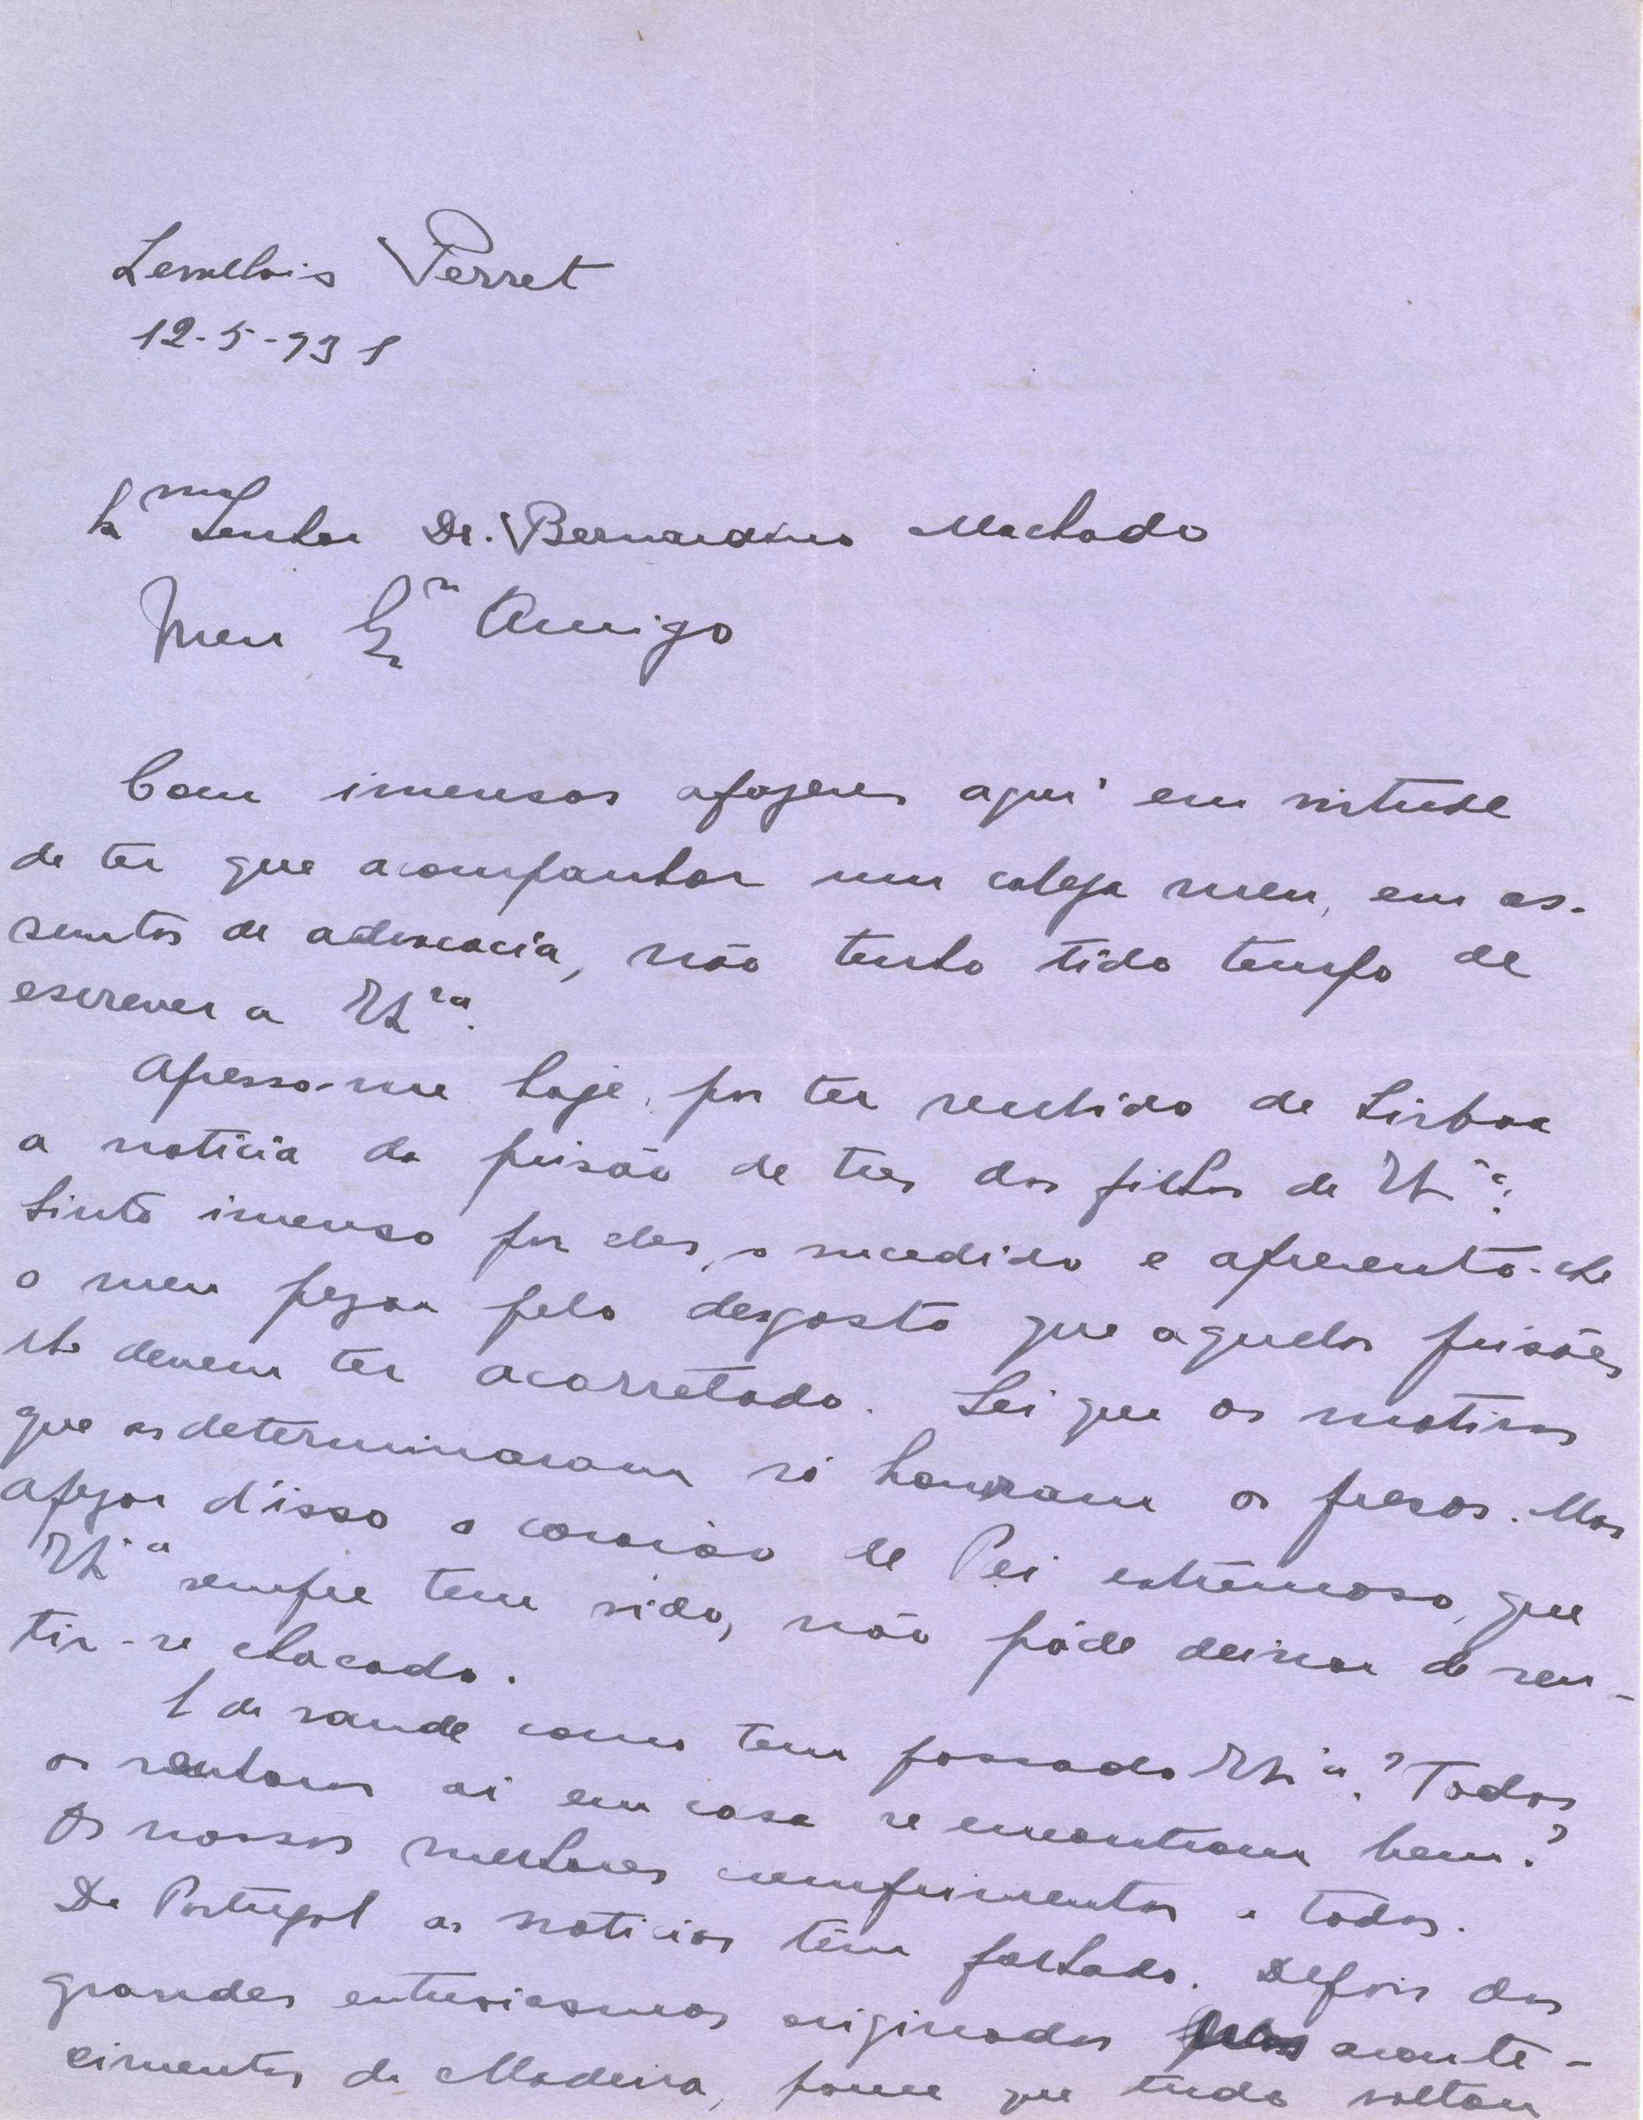 Levallois Perret
12-5-931
Exmo Senhor Dr. Bernardino Machado
Meu Exmo Amigo
Com imensos afazeres aqui em virtude
de ter que acompanhar um colega meu, em as-
suntos de advocacia, não tenho tido tempo de
escrever a V. Exa.
Apresso-me hoje, por ter recebido de Lisboa
a noticia da prisão de tres dos filhos de V. Exa.
Sinto imenso por eles, o sucedido e apresento-lhe
o meu pezar pelo desgosto que aquelas prisões
lhe devem ter acarretado. Sei que os motivos
que as determinaram só honram os presos. Mas
apezar d'isso o coração de Pai extremoso, que
V. Exa sempre tem sido, não póde deixar de sen-
tir-se chocado.
E de saude como tem passado V. Exa? Todos
os senhores ai em casa se encontram bem?
Os nossos melhores cumprimentos a todos.
De Portugal as noticias têm faltado. Depois dos
grandes entusiasmos originados aconte-
cimentos da Madeira, parece que tudo voltou